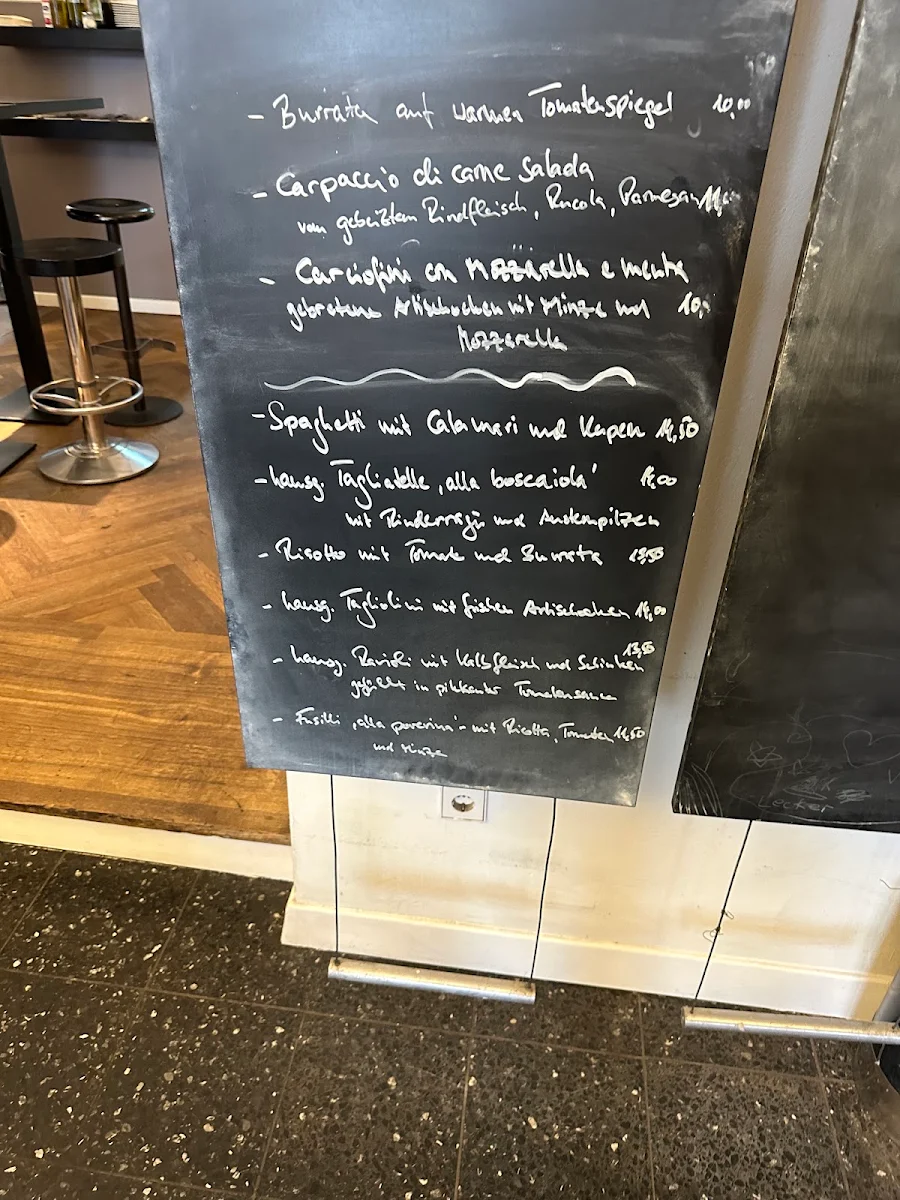 - Burrata auf warmen Tomatenspiegel 10,00
- Carpaccio di carne Salada
vom gebeizten Rindfleisch, Rucola, Parmesan
- Carciofini con Mozzarella e menta
gebratene Artischocken mit Minze und 10,-
Mozzarella
- Spaghetti mit Calamari und Kapern 14,50
- hausg. Tagliatelle 'alla boscaiola' 14,00
mit Rinderragù und Austernpilzen
- Risotto mit Tomate und Burrata 13,50
- hausg. Tagliolini mit frischen Artischocken 14,00
- hausg. Ravioli mit Kalbfleisch und Schinken 13,50
gefüllt in pikkanter Tomatensauce
- Fusilli 'alla poverina' - mit Ricotta, Tomaten 11,50
und Minze
Lecker